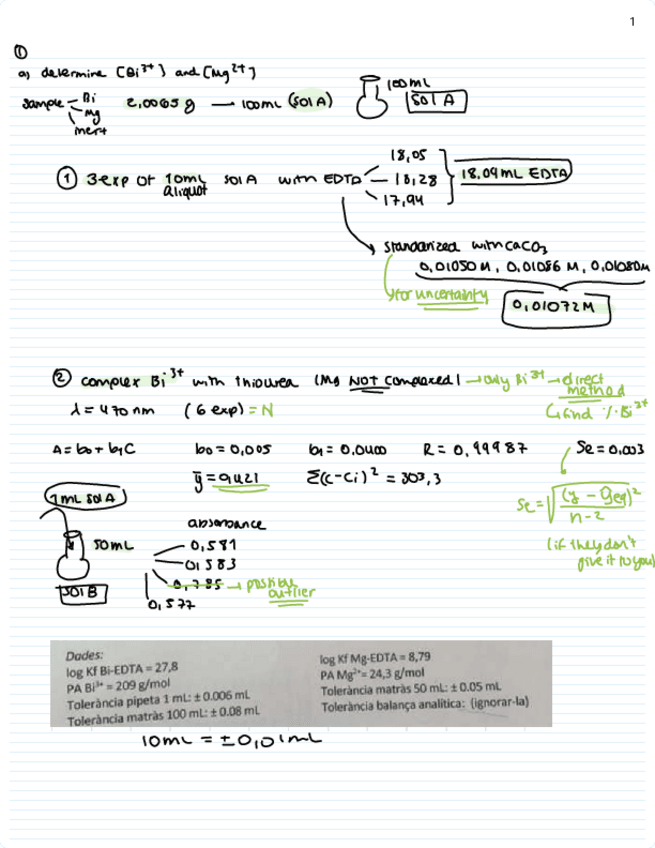 1
①
a) determine [Bi³⁺] and [Mg²⁺]
sample - Bi 2,0065 g → 100mL (SOl A) 100mL SOl A
Mg
inert
① 3exp of 10mL sol A with EDTA 18,05 18,28 17,94 18,09mL EDTA
aliquot
standarized with CaCO₃
0,01050 M, 0,01086 M, 0,01080M
for uncertainty
0,01072 M
② complex Bi³⁺ with thiourea (Mg NOT complexed) → only Bi³⁺ → direct method
λ = 470 nm (6 exp) = N ↳ find % Bi³⁺
A = b₀ + b₁C b₀ = 0,005 b₁ = 0,0400 R = 0,99987 Se = 0,003
ȳ = 0,421 Σ(c-ci)² = 303,3
Se = √((y - yeq)²/(n-2))
(if they don't give it to you)
1mL SOl A
absorbance
50mL 0,581
0,583
0,785 → possible outlier
0,577
SOl B
Dades:
log Kf Bi-EDTA = 27,8 log Kf Mg-EDTA = 8,79
PA Bi³⁺ = 209 g/mol PA Mg²⁺= 24,3 g/mol
Tolerància pipeta 1 mL: ± 0.006 mL Tolerància matràs 50 mL: ± 0.05 mL
Tolerància matràs 100 mL: ± 0.08 mL Tolerància balança analítica: (ignorar-la)
10mL = ±0,01mL